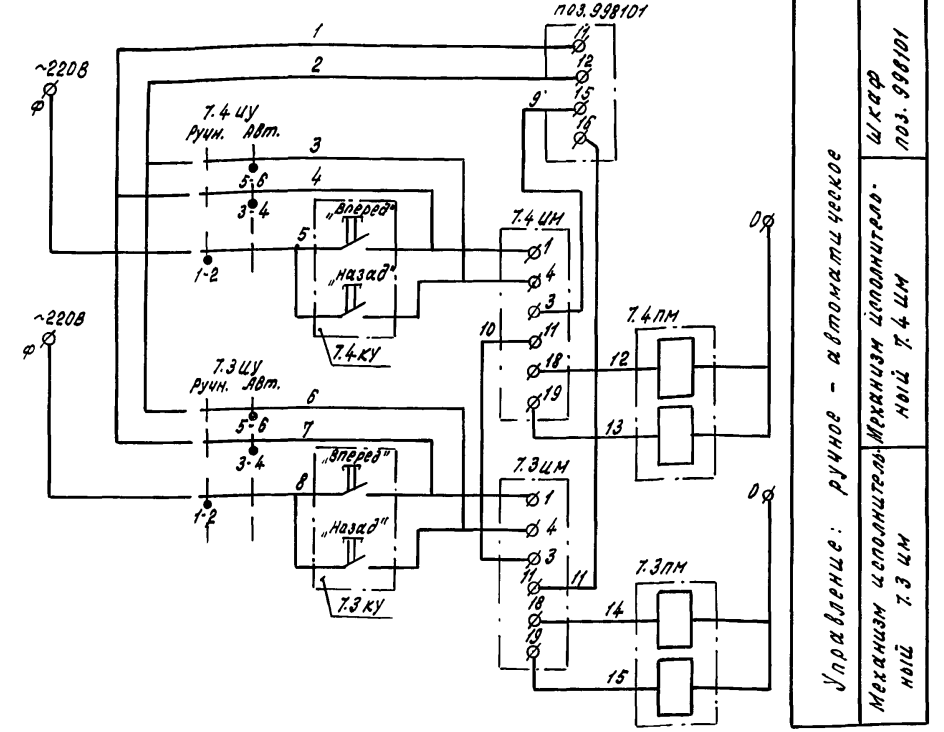 поз. 998101
11
12
15
16
1
2
9
~220В
Ф
7.4 ИУ
Ручн. Авт.
3
5-6
4
3-4
1-2
5
„Вперед"
„Назад"
7.4 КУ
7.4 ИМ
1
4
3
11
18
19
10
12
13
7.4 ПМ
0
~220В
Ф
7.3 ИУ
Ручн. Авт.
6
5-6
7
3-4
1-2
8
„Вперед"
„Назад"
7.3 КУ
7.3 ИМ
1
4
3
11
18
19
11
14
15
7.3 ПМ
0
Управление: ручное - автоматическое
Шкаф
поз. 998101
Механизм исполнитель-
ный 7.4 ИМ
Механизм исполнитель-
ный 7.3 ИМ